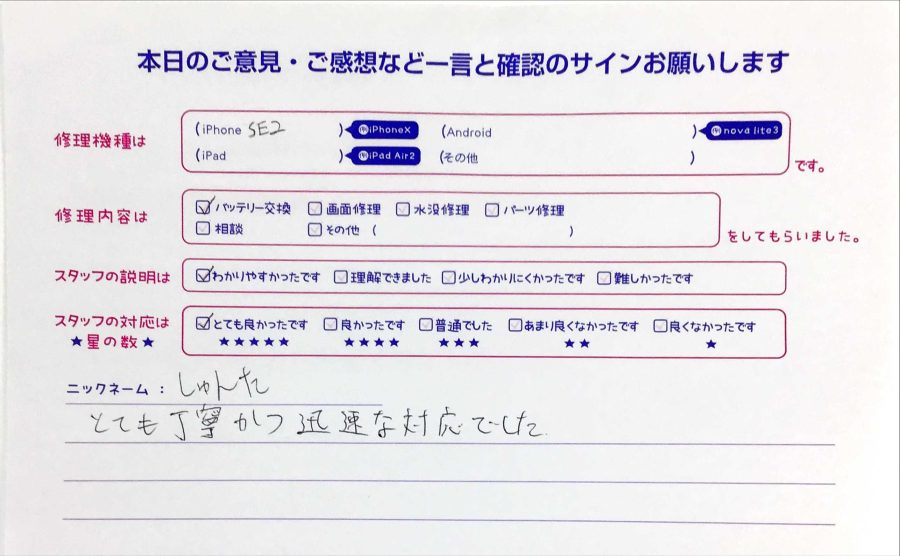 本日のご意見・ご感想など一言と確認のサインお願いします
修理機種は
(iPhone SE2 ) iPhoneX (Android ) nova lite3
(iPad ) iPad Air2 (その他 )
です。
修理内容は
☑バッテリー交換 □画面修理 □水没修理 □パーツ修理
□相談 □その他 ( )
をしてもらいました。
スタッフの説明は ☑わかりやすかったです □理解できました □少しわかりにくかったです □難しかったです
スタッフの対応は ☑とても良かったです □良かったです □普通でした □あまり良くなかったです □良くなかったです
★星の数★ ★★★★★ ★★★★ ★★★ ★★ ★
ニックネーム : しゅんた
とても丁寧かつ迅速な対応でした